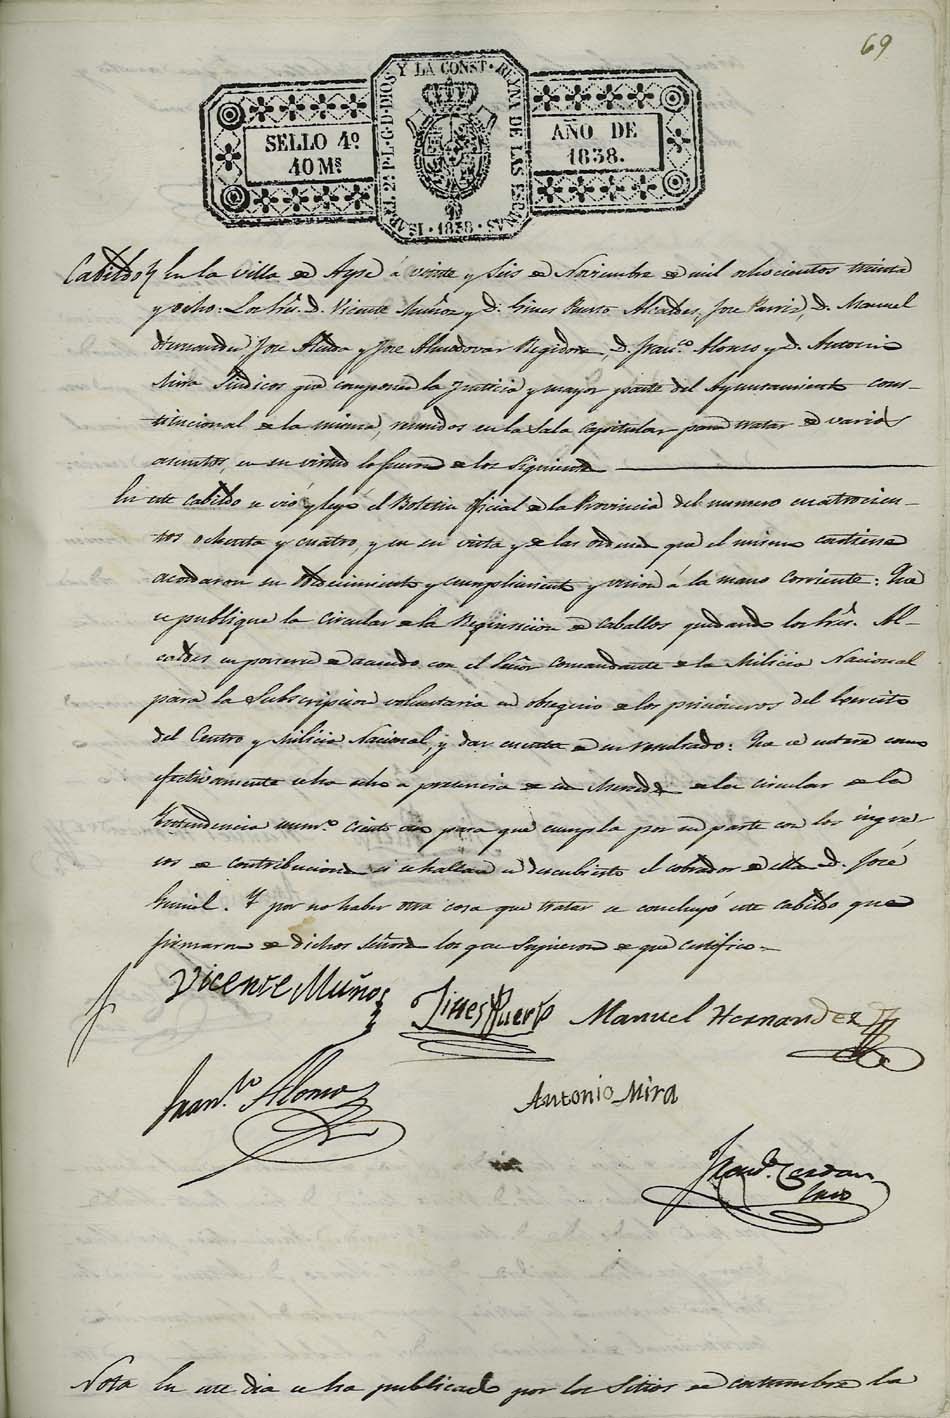 69
ISABEL 2ª P. L. G. D. DIOS Y LA CONST. REYNA DE LAS ESPAÑAS · 1838 ·
SELLO 4º
40 Ms
AÑO DE
1838.
Cabildo En la villa de Aspe á veinte y seis de Noviembre de mil ochocientos treinta
y ocho: Los Sres. D. Vicente Muñoz y D. Gines Puerto Alcaldes, Jose D. Manuel
Hernandez Jose Alcdea y Jose Almodovar Regidores, D. Franco. Alonso y D. Antonio
Mira Sindicos que componen la Justicia y mayor parte del Ayuntamiento cons-
titucional de la misma, reunidos en la Sala Capitular para tratar de varios
asuntos, en su virtud lo fueron de los siguientes
En este Cabildo se vió y leyo el Boletin oficial de la Provincia del numero cuatrocien-
tos ochenta y cuatro, y en su vista y de las ordenes que el mismo contiene
acordaron su obedecimiento y cumplimiento y union á la mano corriente: Que
se publique la Circular de la Requisicion de caballos quedando los Sres. Al-
caldes en ponerse de acuerdo con el Señor Comandante de la Milicia Nacional
para la Subscripcion voluntaria en obsequio de los prisioneros del Ejercito
del Centro y Milicia Nacional, y dar cuenta de su resultado: Que se entere como
efectivamente se ha echo á presencia de sus Mercedes de la circular de la
Yntendencia numo. ciento para que cumpla por su parte con los ingre-
sos de contribuciones si se hallare en descubierto el cobrador de ellas D. José
Y por no haber otra cosa que tratar se concluyó este cabildo que
firmaron de dichos Señores los que supieron de que certifico=
Vicente Muñoz
Gines Puerto
Manuel Hernandez
Franco. Alonso
Antonio Mira
Franco. Cerdan
Srio
Nota En este dia se ha publicado por los Sitios de costumbre la